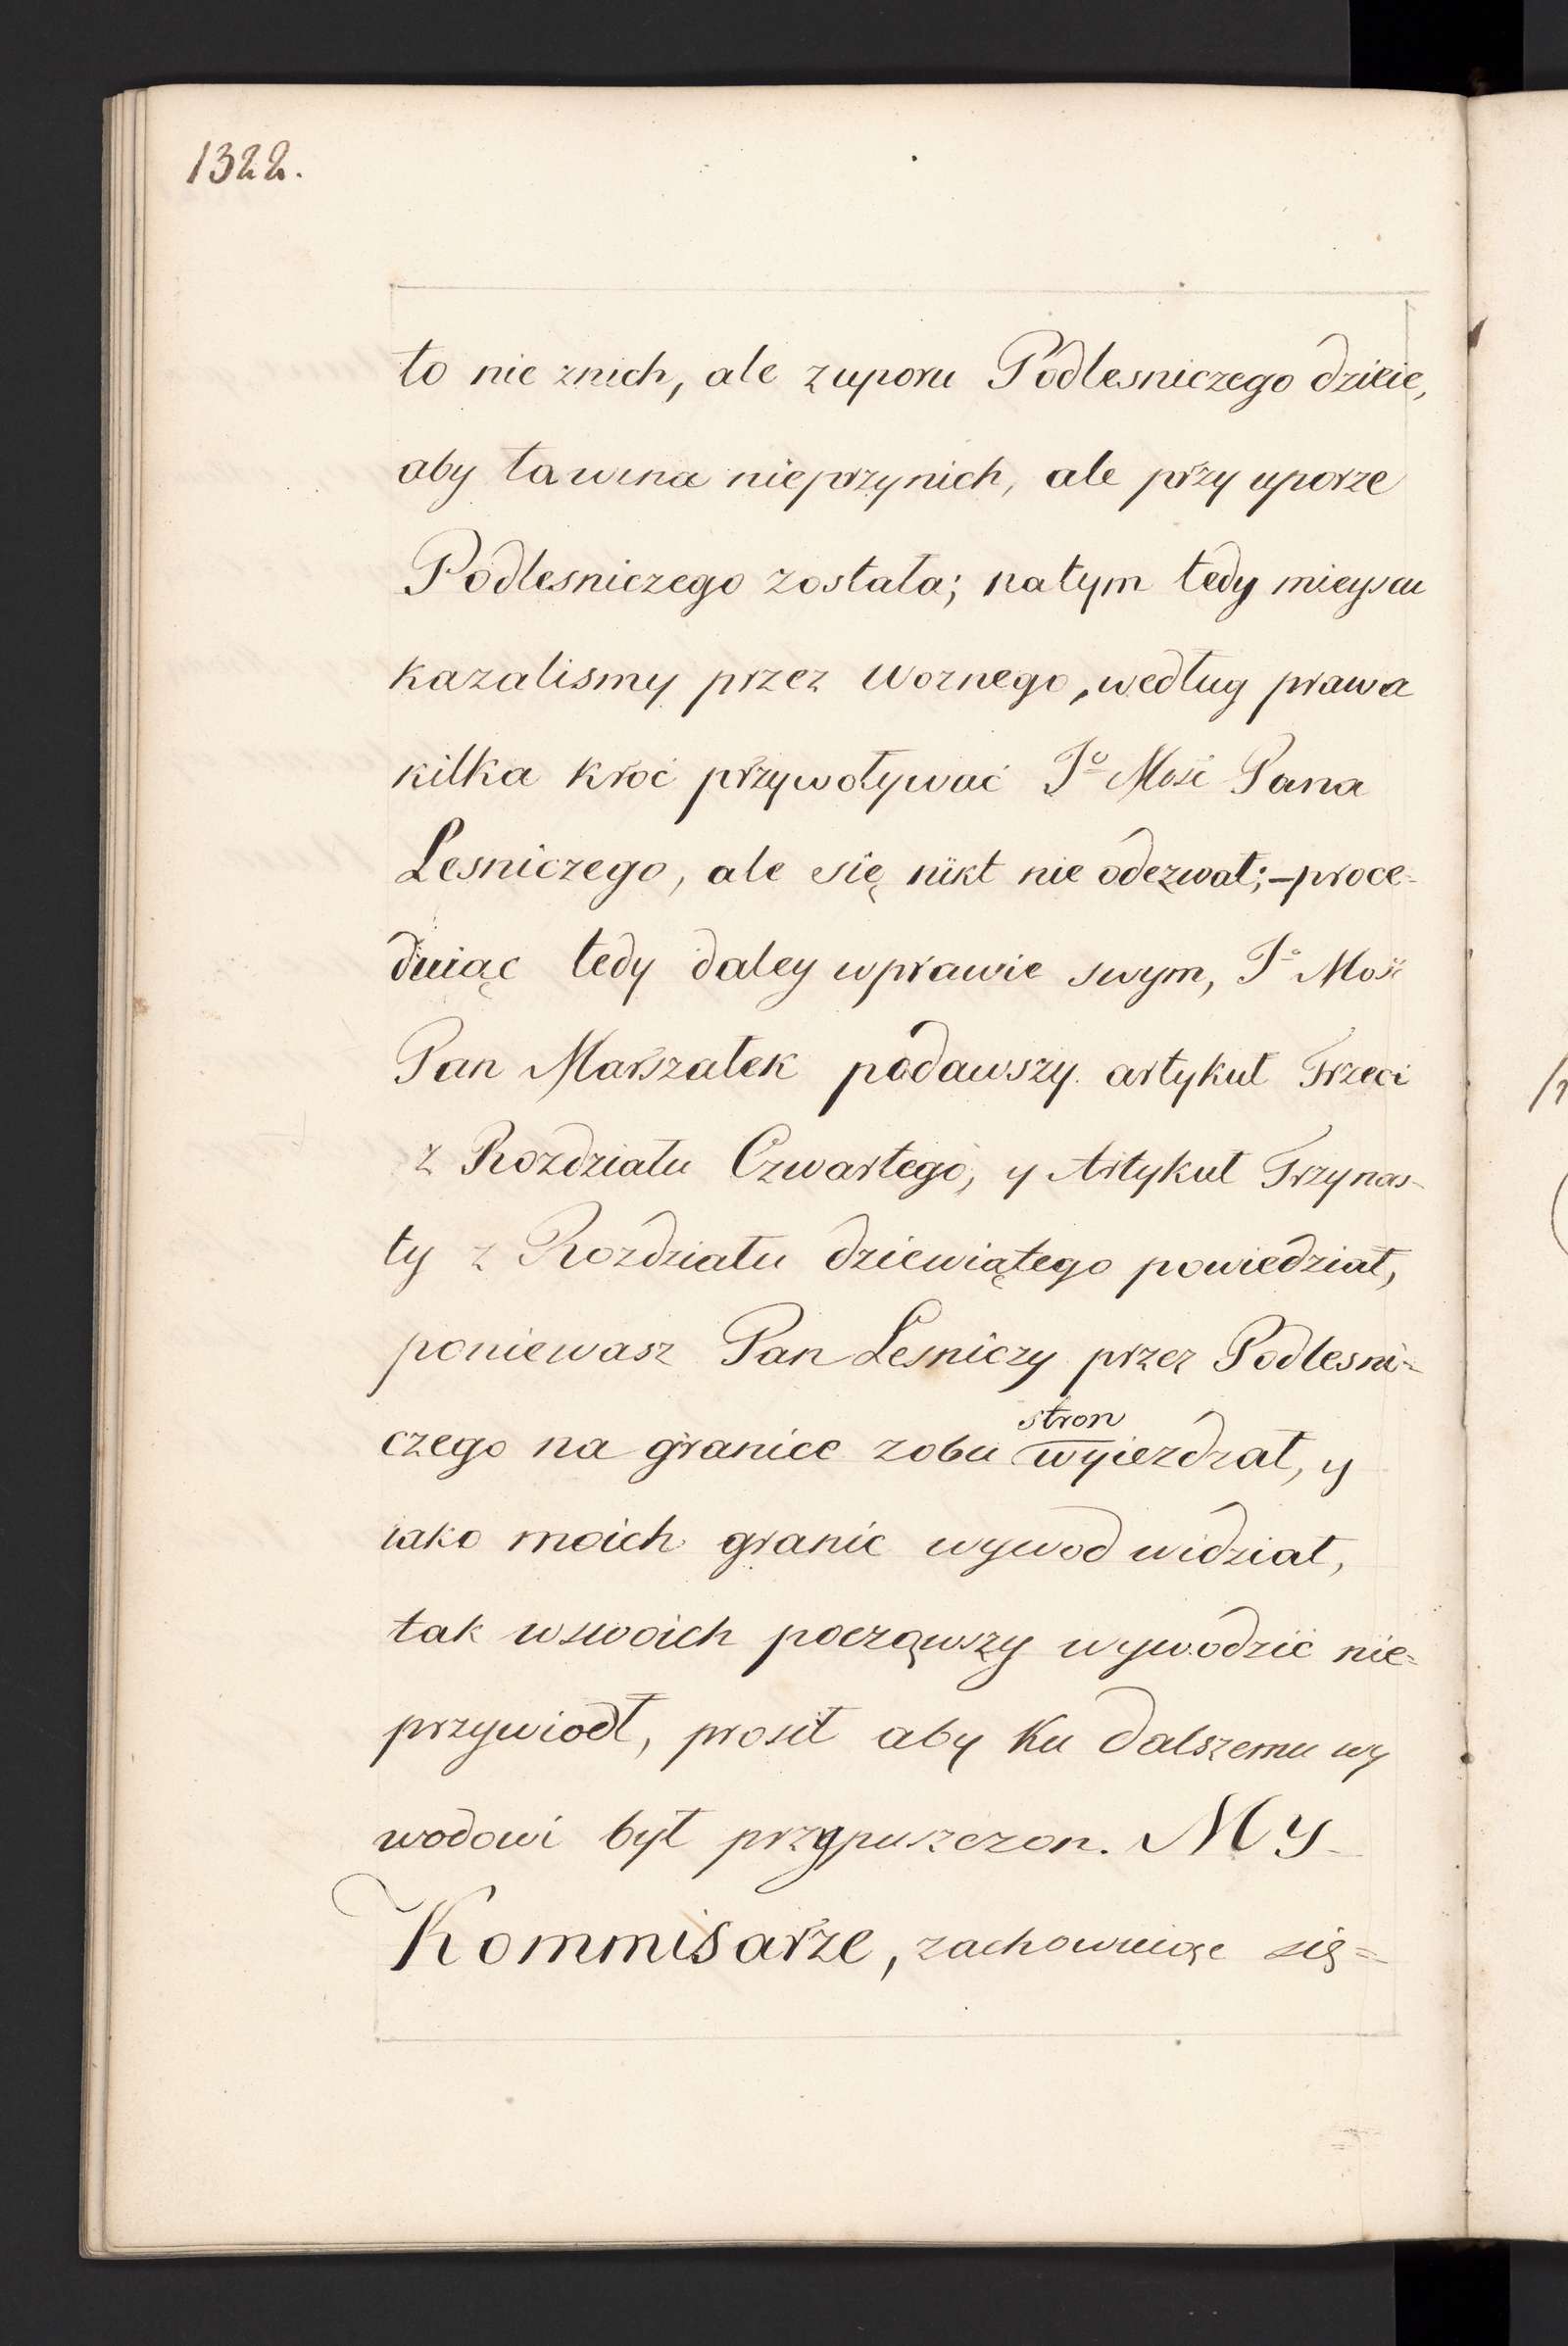 1322.
to nie znich, ale z uporu Podlesniczego dzieie,
aby ta wina nieprzynich, ale przy uporze
Podlesniczego została; natym tedy mieyscu
kazalismy przez woznego, według prawa
kilka kroć przywoływać Jº Mość Pana
Lesniczego, ale się nikt nie odezwał; – proce=
duiąc tedy daley wprawie swym, Jº Mość
Pan Marszałek podawszy artykuł Trzeci
z Rozdziału Czwartego, y Artykuł Trzynas-
ty z Rozdziału dziewiątego powiedział,
poniewasz Pan Lesniczy przez Podlesni=
czego na granice zobu stron wyiezdzał, y
iako moich granic wywod widział,
tak wswoich począwszy wywodzić nie=
przywiodł, prosił aby ku dalszemu wy
wodowi był przypuszczon. My
Kommisarze, zachowuiąc się=